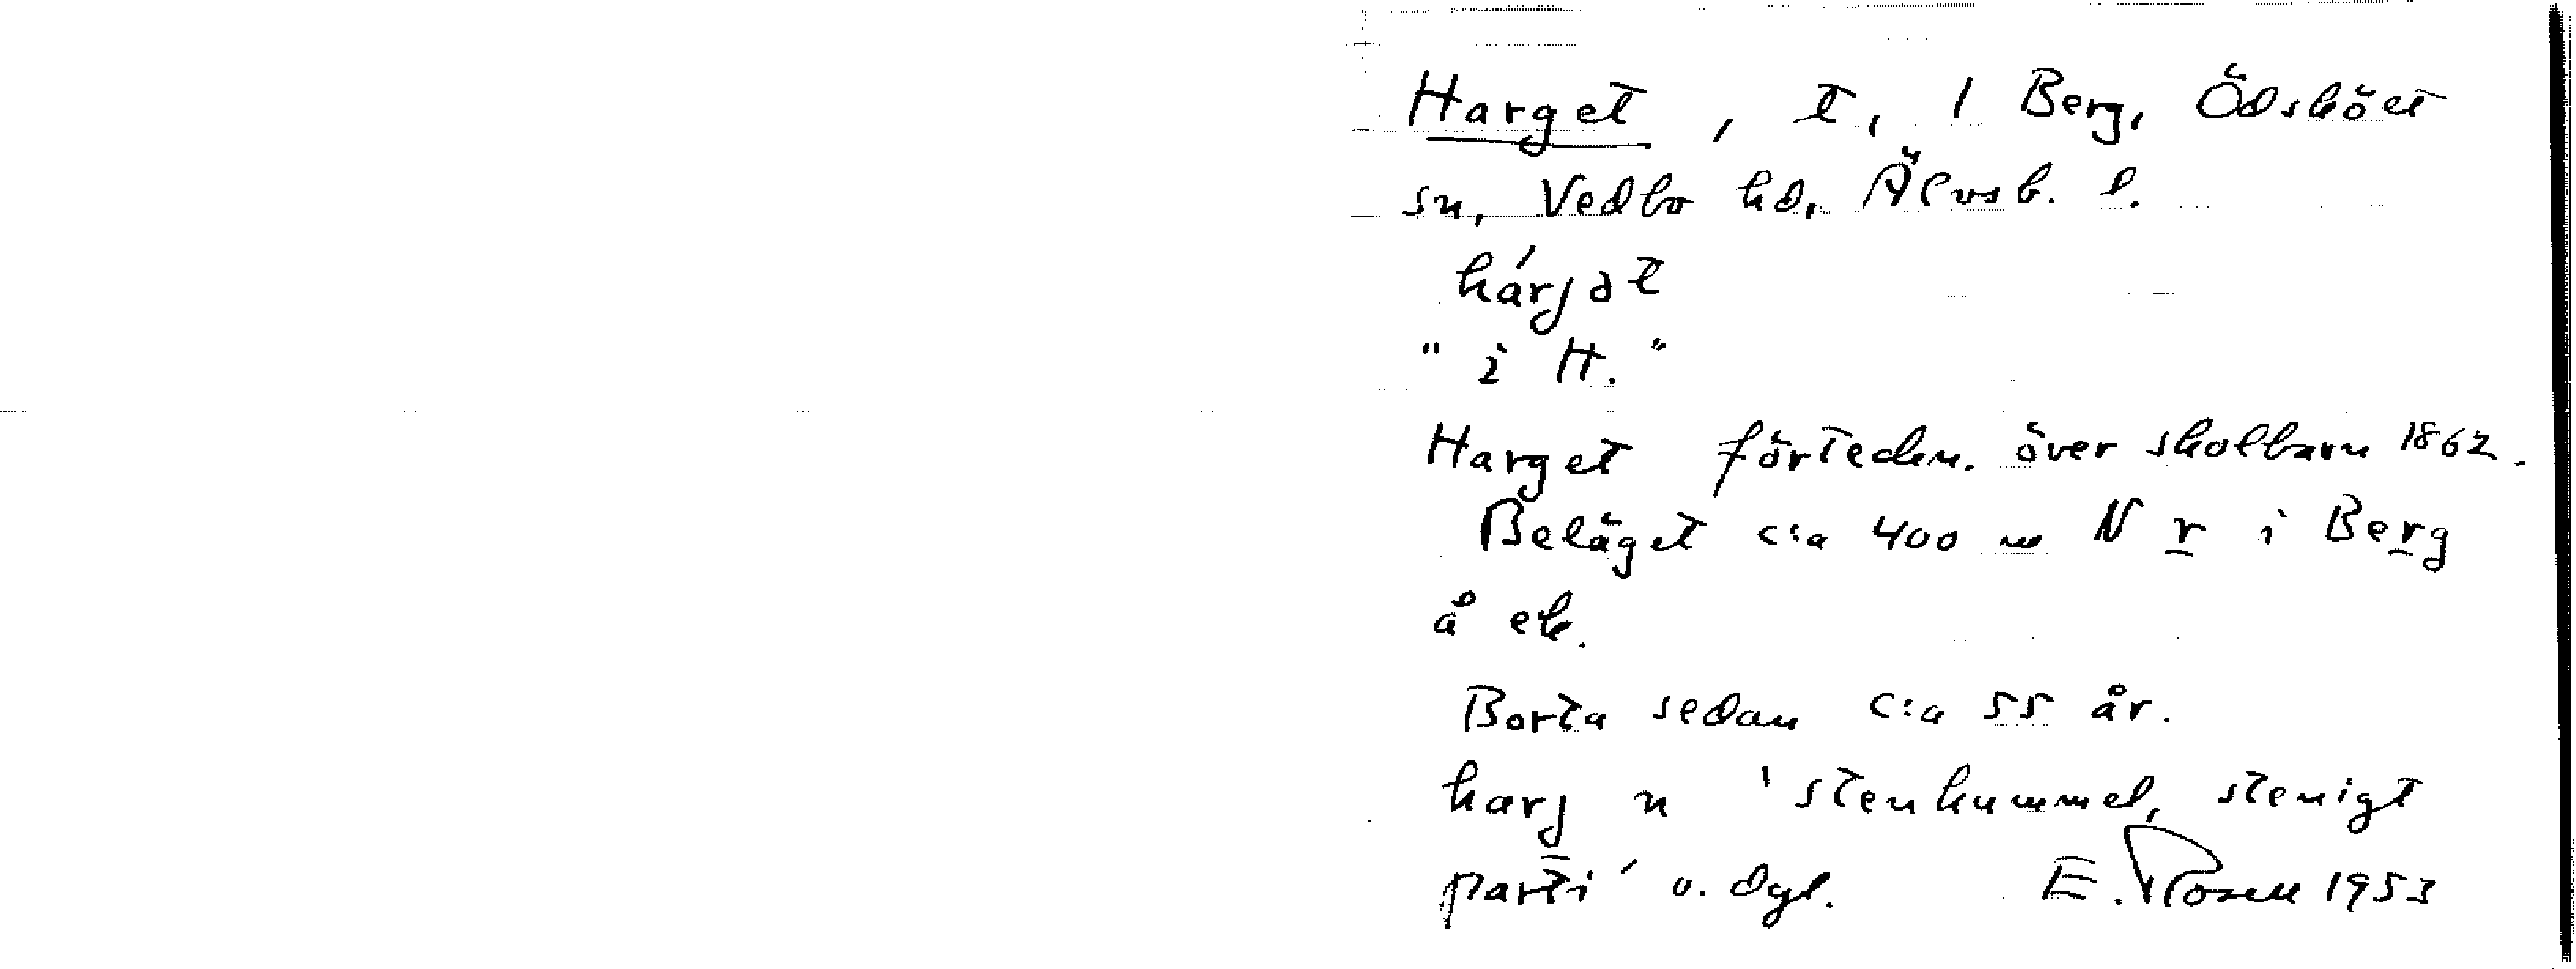 Harget, t, 1 Berg, Ödskölt
sn, Vedbo hd, Älvsb. l.
hárjət
"i H."
Harget förteckn. över skolbarn 1862.
Beläget c:a 400 m N r i Berg
å ek.
Borta sedan c:a 55 år.
harj n 'stenkummel, stenigt
parti' o. dyl. E. Rosell 1953